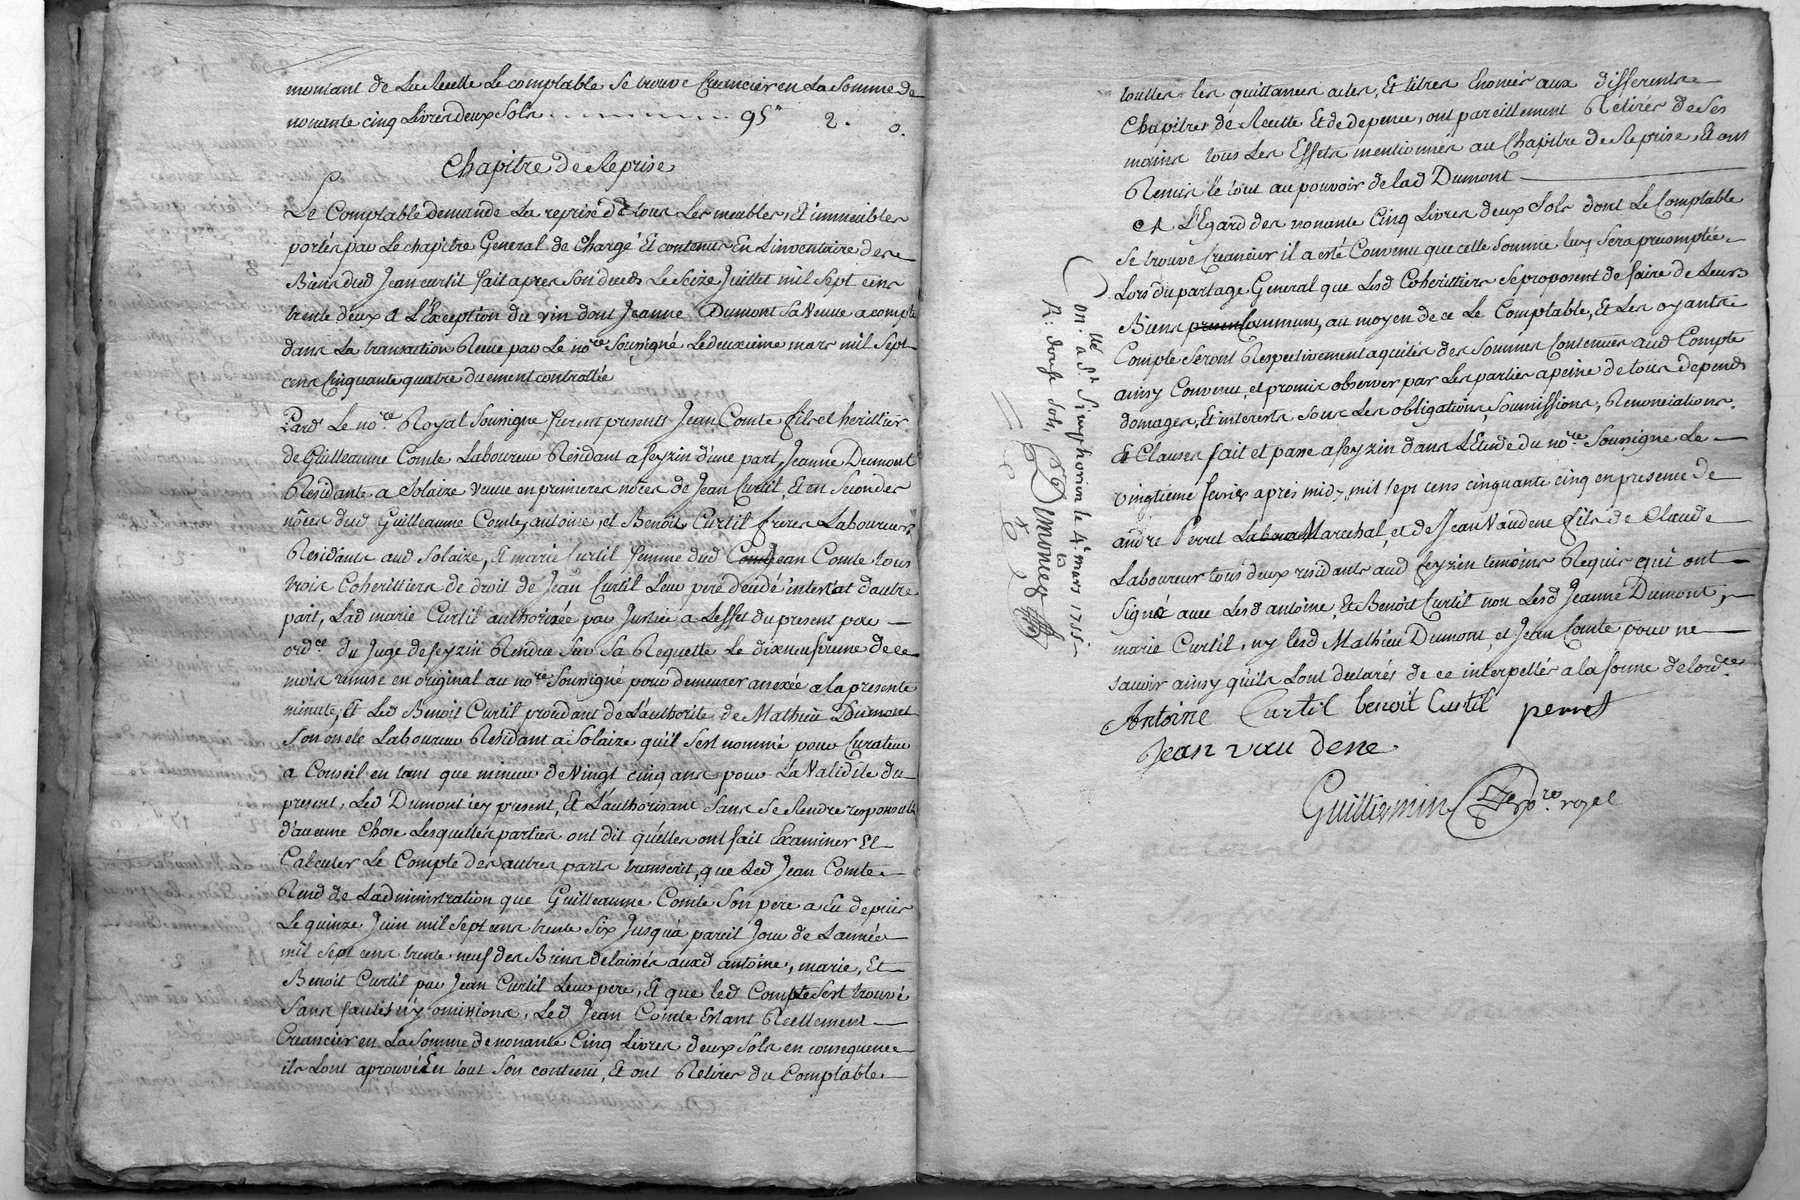 montant de La Recette Le comptable se trouve Creancier en La Somme de
nonante cinq Livres deux Sols . . . . . . . . 95ᵗᵗ 2. 0.
Chapitre de Reprise
Le Comptable demande La reprise de tous Les meubles, Et immeubles
portés par Le chapitre General de charge Et contenus En L'inventaire des
Biens dud Jean curtil fait apres Son deceds Le Seize Juillet mil Sept cens
trente deux A L'Exception du vin dont Jeanne Dumont Sa Veuve a compté
dans La transaction Receue par Le noʳᵉ Sousigné Le deuxieme mars mil Sept
cens Cinquante quatre duement controllée
Pard Le noʳᵉ Royal Soussigne furent presents Jean Comte fils et herittier
de Guilleaume Comte Laboureur Residant a feyzin d'une part, Jeanne Dumont
Residante a Solaire veuve en premieres nôces de Jean Curtil, Et en Secondes
nôces dud Guilleaume Comte, antoine, et Benoit Curtil freres Laboureurs
Residants aud Solaire, Et marie Curtil femme dud Jean Comte tous
trois Coherittiers de droit de Jean Curtil Leur pere decédé intestat d'autre
part, Lad marie Curtil authorisée par Justice a L'effet du present par
ordᶜᵉ du Juge de feyzin Rendue Sur Sa Requette Le dixneufvieme de ce
mois remise en original au noʳᵉ Soussigné pour demeurer anexée a la presente
minute, Et Led Benoit Curtil procedant de L'authorité de Mathieu Dumont
Son oncle Laboureur Residant a Solaire qu'il S'est nommé pour Curateur
a Conseil en tant que mineur de Vingt cinq ans pour La Validité du
present, Led Dumont icy present, Et L'authorisant Sans Se Rendre responsable
d'aucune Chose Lesquelles parties ont dit qu'elles ont fait Examiner Et
Calculer Le Compte des autres parts transcrit, que Led Jean Comte
Rend de L'administration que Guilleaume Comte Son pere a Eu depuis
Le quinze Juin mil Sept cens trente Six Jusqu'a pareil Jour de L'année
mil Sept cens trente neuf des Biens delaissés auxd antoine, marie, Et
Benoit Curtil par Jean Curtil Leur pere, Et que led Compte S'est trouvé
Sans fautes n'y omissions, Led Jean Comte Estant Reellement
Creancier en La Somme de nonante Cinq Livres deux Sols en consequence
ils Lont aprouvé En tout Son contenu, Et ont Retirés du Comptable
touttes les quittances actes, Et titres Enoncés aux differents
Chapitres de Recette Et de depence, ont pareillement Retirés de Ses
mains tous Les Effets mentionnés au Chapitre de Reprise, Et ont
Remis le tout au pouvoir de lad Dumont
A L'Egard des nonante Cinq Livres deux Sols dont Le Comptable
Se trouve Creancier il a esté Convenu que cette Somme luy Sera precomptée
Lors du partage General que Lesd Coherittiers Se proposent de faire de Leurs
Biens Communs, au moyen de ce Le Comptable, Et Les oyants
Compte Seront Respectivement aquittés des Sommes Contenues aud Compte
ainsy Convenu, et promis observer par Les parties a peine de tous depends
domages, Et interests Sous Les obligations, Soumissions, Renonciations
& Clauses fait et passe a feyzin dans L'Etude du noʳᵉ Soussigne Le
vingtieme fevrier apres midy mil Sept cens cinquante cinq en presence de
andre Perret Marechal, et de Jean Vaudene fils de Claude
Laboureur tous deux residants aud feyzin temoins Requis qui ont
Signé avec Lesd antoine, Et Benoit Curtil non Lesd Jeanne Dumont,
marie Curtil, ny lesd Mathieu Dumont, et Jean Comte pour ne
Savoir ainsy qu'ils Lont declarés de ce interpellés a la forme de lordᶜᵉ
Antoine Curtil benoit Curtil perret
Jean vau dene
Guilliermin noʳᵉ royal
Conᵗʳˡˡᵉ a Sᵗ Simphorien le 4ᵉ mars 1755
R: douse Sols Dimonier